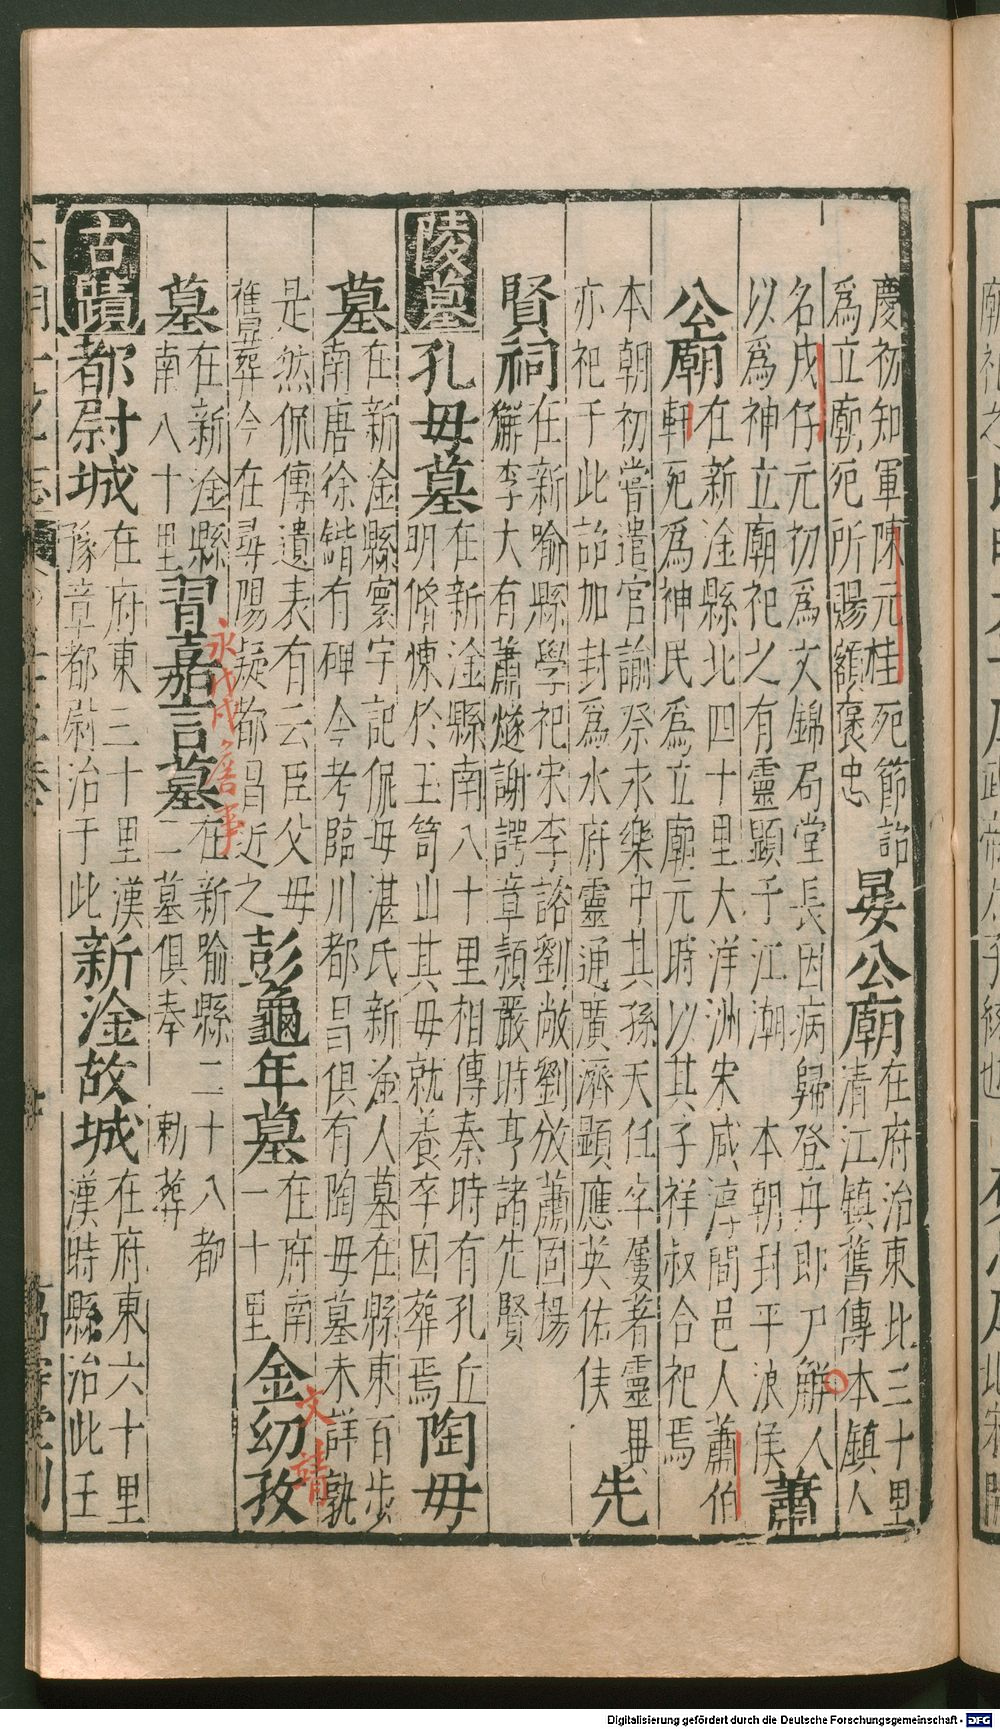 慶初知軍陳元桂死節詔
爲立廟死所賜額褒忠
晏公廟
在府治東北三十里
清江鎮舊傳本鎮人
名戌仔元初爲文錦局堂長因病歸登舟即尸解人
以爲神立廟祀之有靈顯于江湖 本朝封平浪侯
蕭
公廟
在新淦縣北四十里大洋洲宋咸淳間邑人蕭伯
軒死爲神民爲立廟元時以其子祥叔合祀焉
本朝初嘗遣官諭祭永樂中其孫天任卒屢著靈異
亦祀于此詔加封爲水府靈通廣濟顯應英佑侯
先
賢祠
在新喻縣學祀宋李諮劉敞劉攽蕭固楊
獬李大有蕭燧謝諤章頴嚴時亨諸先賢
陵墓
孔母墓
在新淦縣南八十里相傳秦時有孔丘
明脩煉於玉笥山其母就養卒因葬焉
陶母
墓
在新淦縣寰宇記侃母湛氏新淦人墓在縣東百步
南唐徐鍇有碑今考臨川都昌俱有陶母墓未詳孰
是然侃傳遺表有云臣父母
舊葬今在尋陽疑都昌近之
彭龜年墓
在府南
一十里
金幼孜
文靖
墓
在新淦縣
南八十里
習嘉言墓
永戊戌詹事
在新喻縣二十八都
二墓俱奉 勅葬
古蹟
都尉城
在府東三十里漢
豫章都尉治于此
新淦故城
在府東六十里
漢時縣治此王
Digitalisierung gefördert durch die Deutsche Forschungsgemeinschaft - DFG